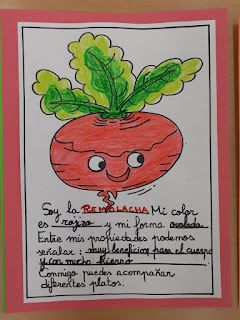 Soy la REMOLACHA Mi color
es rojizo y mi forma ovalada.
Entre mis propiedades podemos
señalar: muy beneficiosa para el cuerpo
y con mucho hierro.
Conmigo puedes acompañar
diferentes platos.